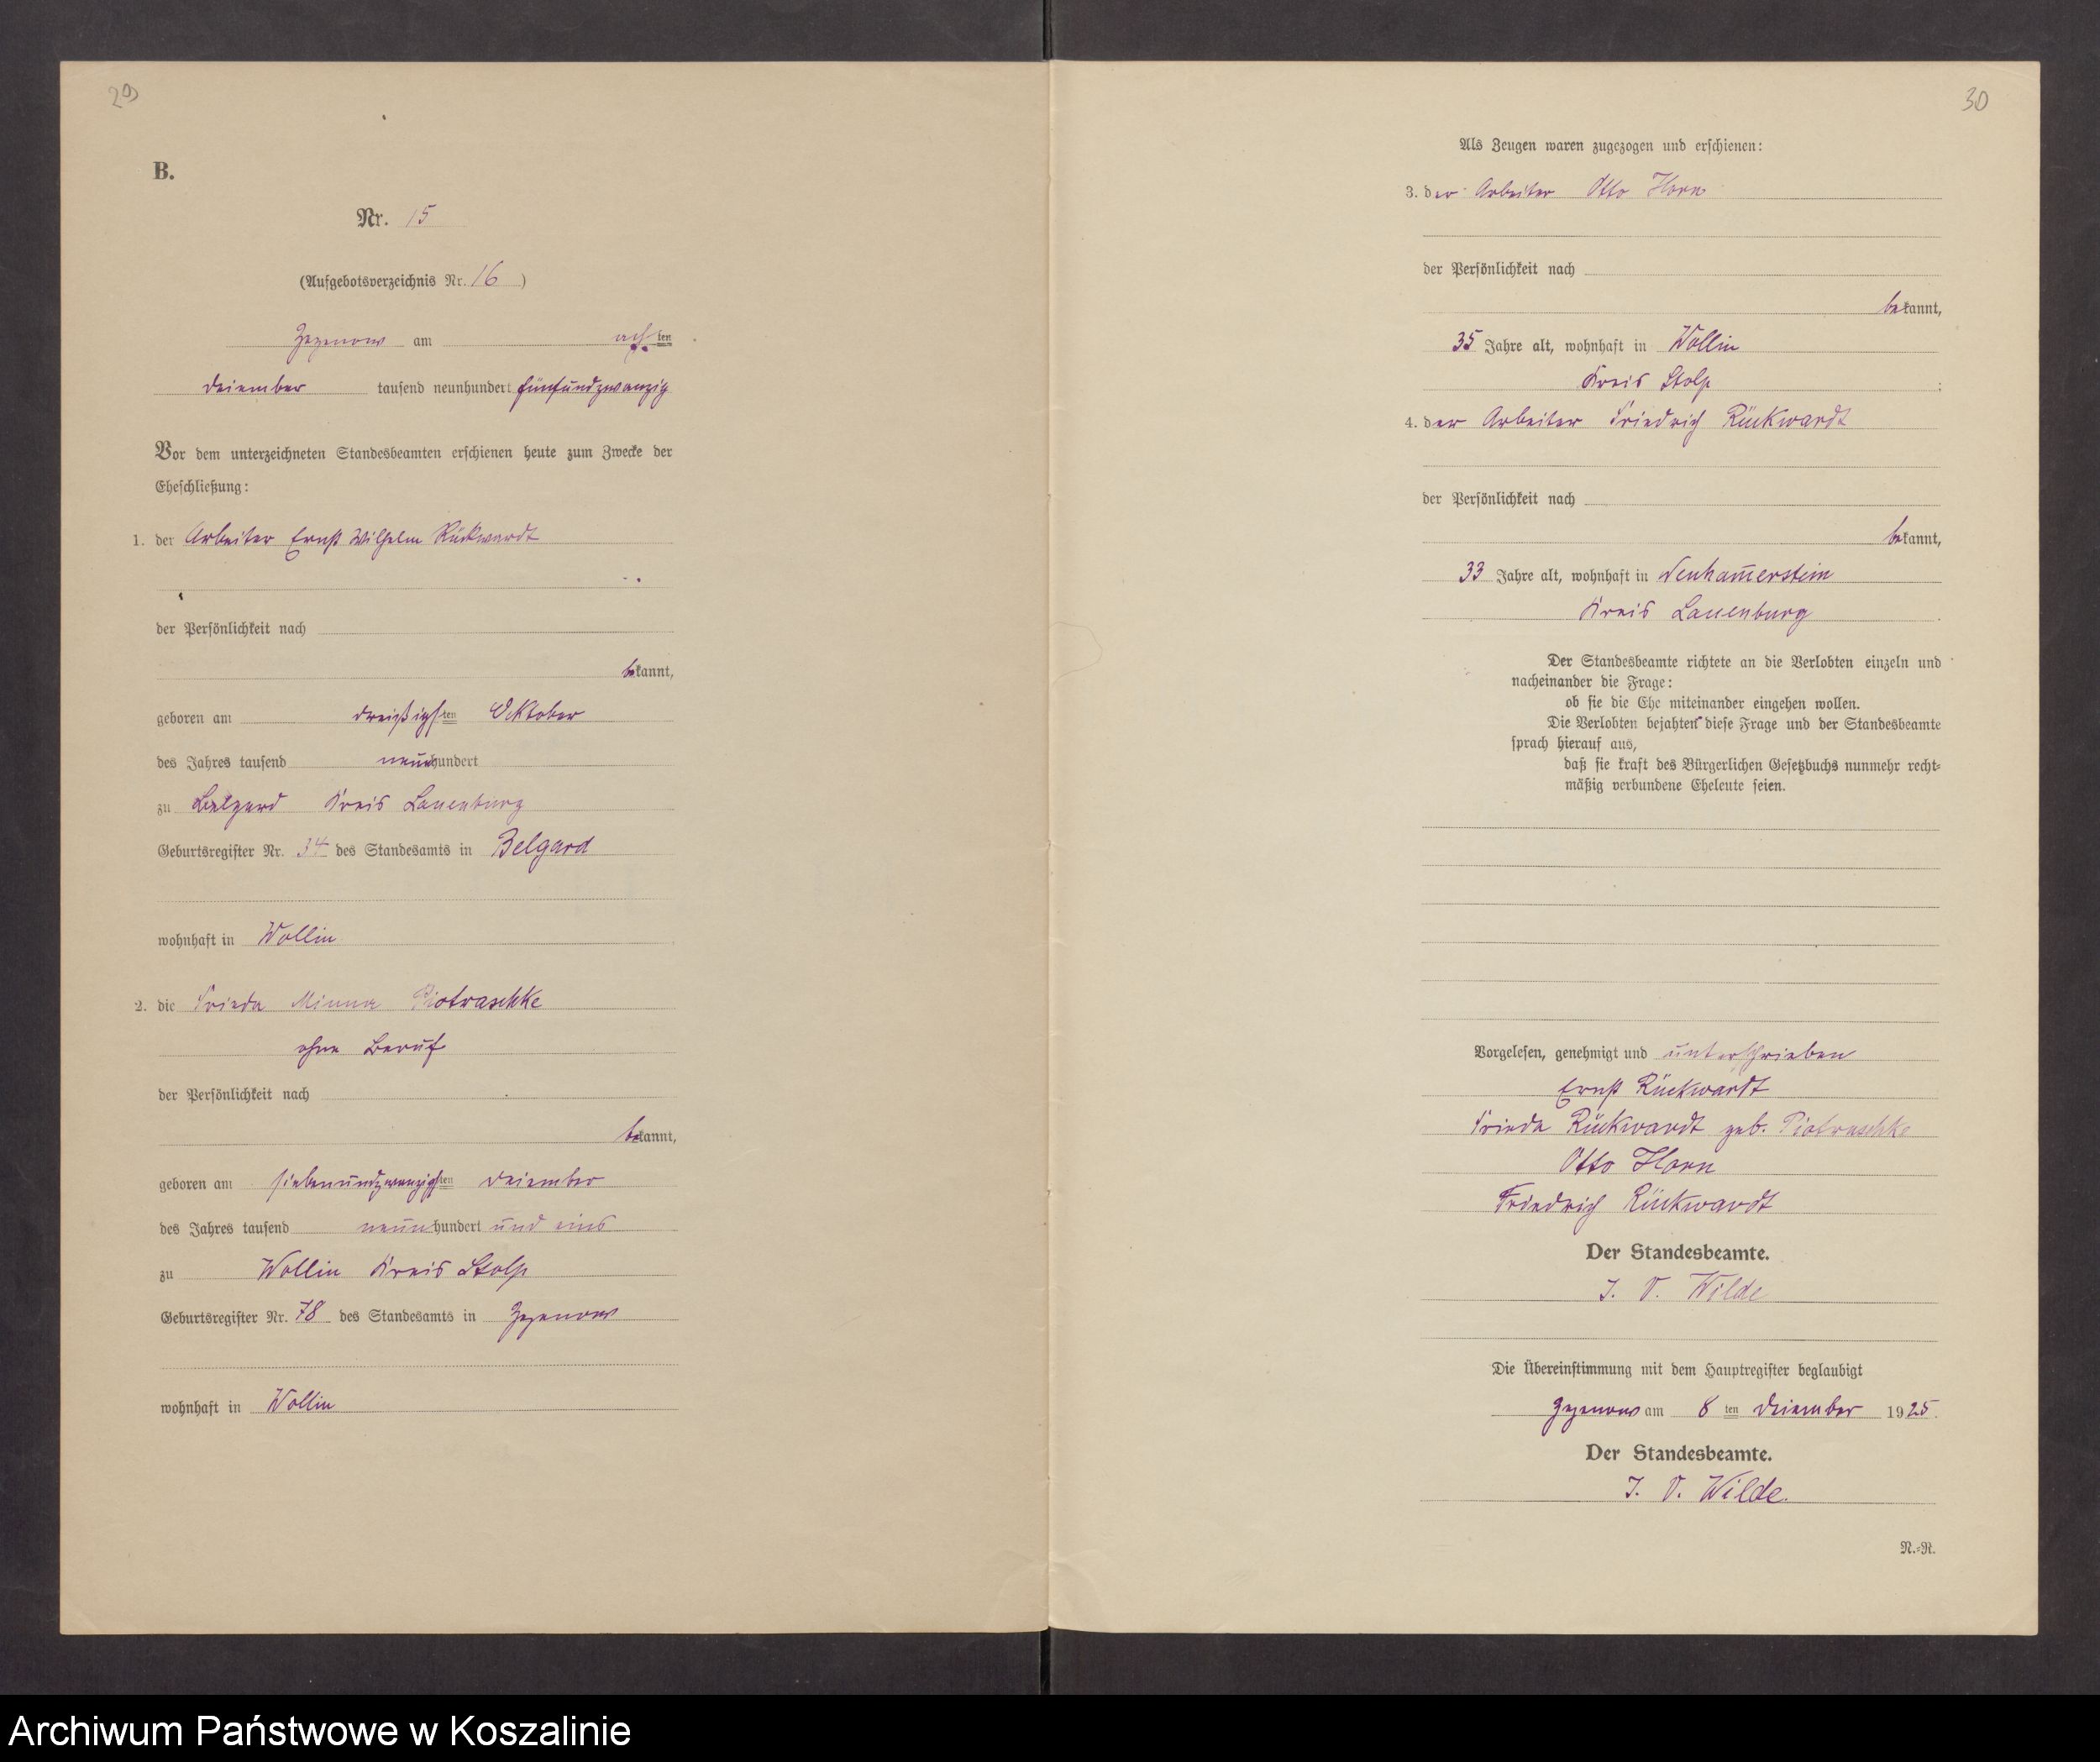 29
B.
Nr. 15
(Aufgebotsverzeichnis Nr. 16)
Zezenow am achten
Dezember tausend neunhundert fünfundzwanzig
Vor dem unterzeichneten Standesbeamten erschienen heute zum Zwecke der
Eheschließung:
1. der Arbeiter Ernst Wilhelm Rückwardt
der Persönlichkeit nach
bekannt,
geboren am dreißigsten Oktober
des Jahres tausend neunhundert
zu Belgard Kreis Lauenburg
Geburtsregister Nr. 34 des Standesamts in Belgard
wohnhaft in Wollin
2. die Frieda Minna Piotraschke
ohne Beruf
der Persönlichkeit nach
bekannt,
geboren am siebenundzwanzigsten Dezember
des Jahres tausend neunhundert und eins
zu Wollin Kreis Stolp
Geburtsregister Nr. 78 des Standesamts in Zezenow
wohnhaft in Wollin
30
Als Zeugen waren zugezogen und erschienen:
3. der Arbeiter Otto Horn
der Persönlichkeit nach
bekannt,
35 Jahre alt, wohnhaft in Wollin
Kreis Stolp;
4. der Arbeiter Friedrich Rückwardt
der Persönlichkeit nach
bekannt,
33 Jahre alt, wohnhaft in Neuham̅erstein
Kreis Lauenburg.
Der Standesbeamte richtete an die Verlobten einzeln und
nacheinander die Frage:
ob sie die Ehe miteinander eingehen wollen.
Die Verlobten bejahten diese Frage und der Standesbeamte
sprach hierauf aus,
daß sie kraft des Bürgerlichen Gesetzbuchs nunmehr recht-
mäßig verbundene Eheleute seien.
Vorgelesen, genehmigt und unterschrieben
Ernst Rückwardt
Frieda Rückwardt geb. Piotraschke
Otto Horn
Friedrich Rückwardt
Der Standesbeamte.
J. V. Wilde
Die Übereinstimmung mit dem Hauptregister beglaubigt
Zezenow am 8ten Dezember 1925.
Der Standesbeamte.
J. V. Wilde.
N.-R.
Archiwum Państwowe w Koszalinie